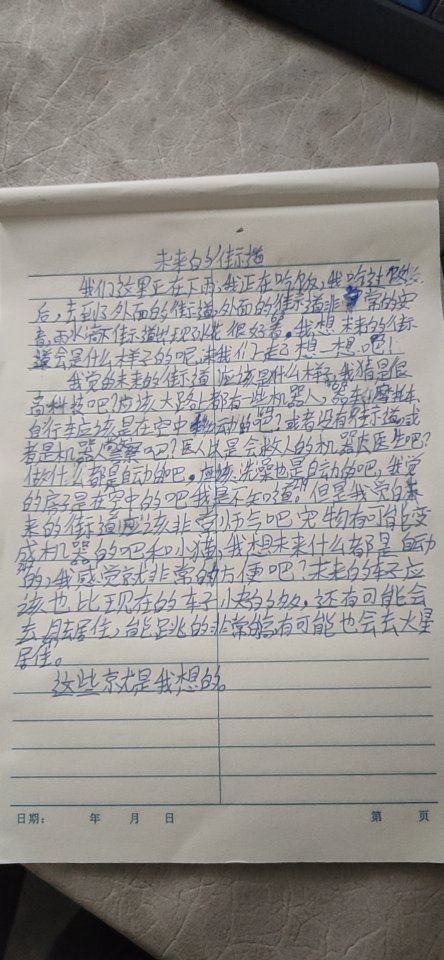 未来的街道
我们这里正在下雨,我正在吃饭,我吃过饭
后,走到了外面的街道,外面的街道非常的安
静,雨水滴在街道出现水花很好看。我想未来的街
道会是什么样子的呢,来我们一起想一想吧!
我觉的未来的街道应该是什么样子,我猜是很
高科技吧?应该大路上都有一些机器人,摩托车
自行车应该是在空中移动的吧?或者没有街道,或
者是机器警察吧?医人的是会救人的机器人医生吧?
做什么都是自动的吧。应该洗澡也是自动的吧,我觉
的房子是在空中的吧我是不知道。但是我觉得未
来的街道应该非常帅气吧宠物有可能变
成机器的吧和小猫,我想未来什么都是自动
的,我感觉就非常的方便吧?未来的车子应
该也比现在的车子快的多,还有可能会
去月球居住,能跳的非常的高,有可能也会去火星
居住。
这些就是我想的。
日期: 年 月 日 第 页